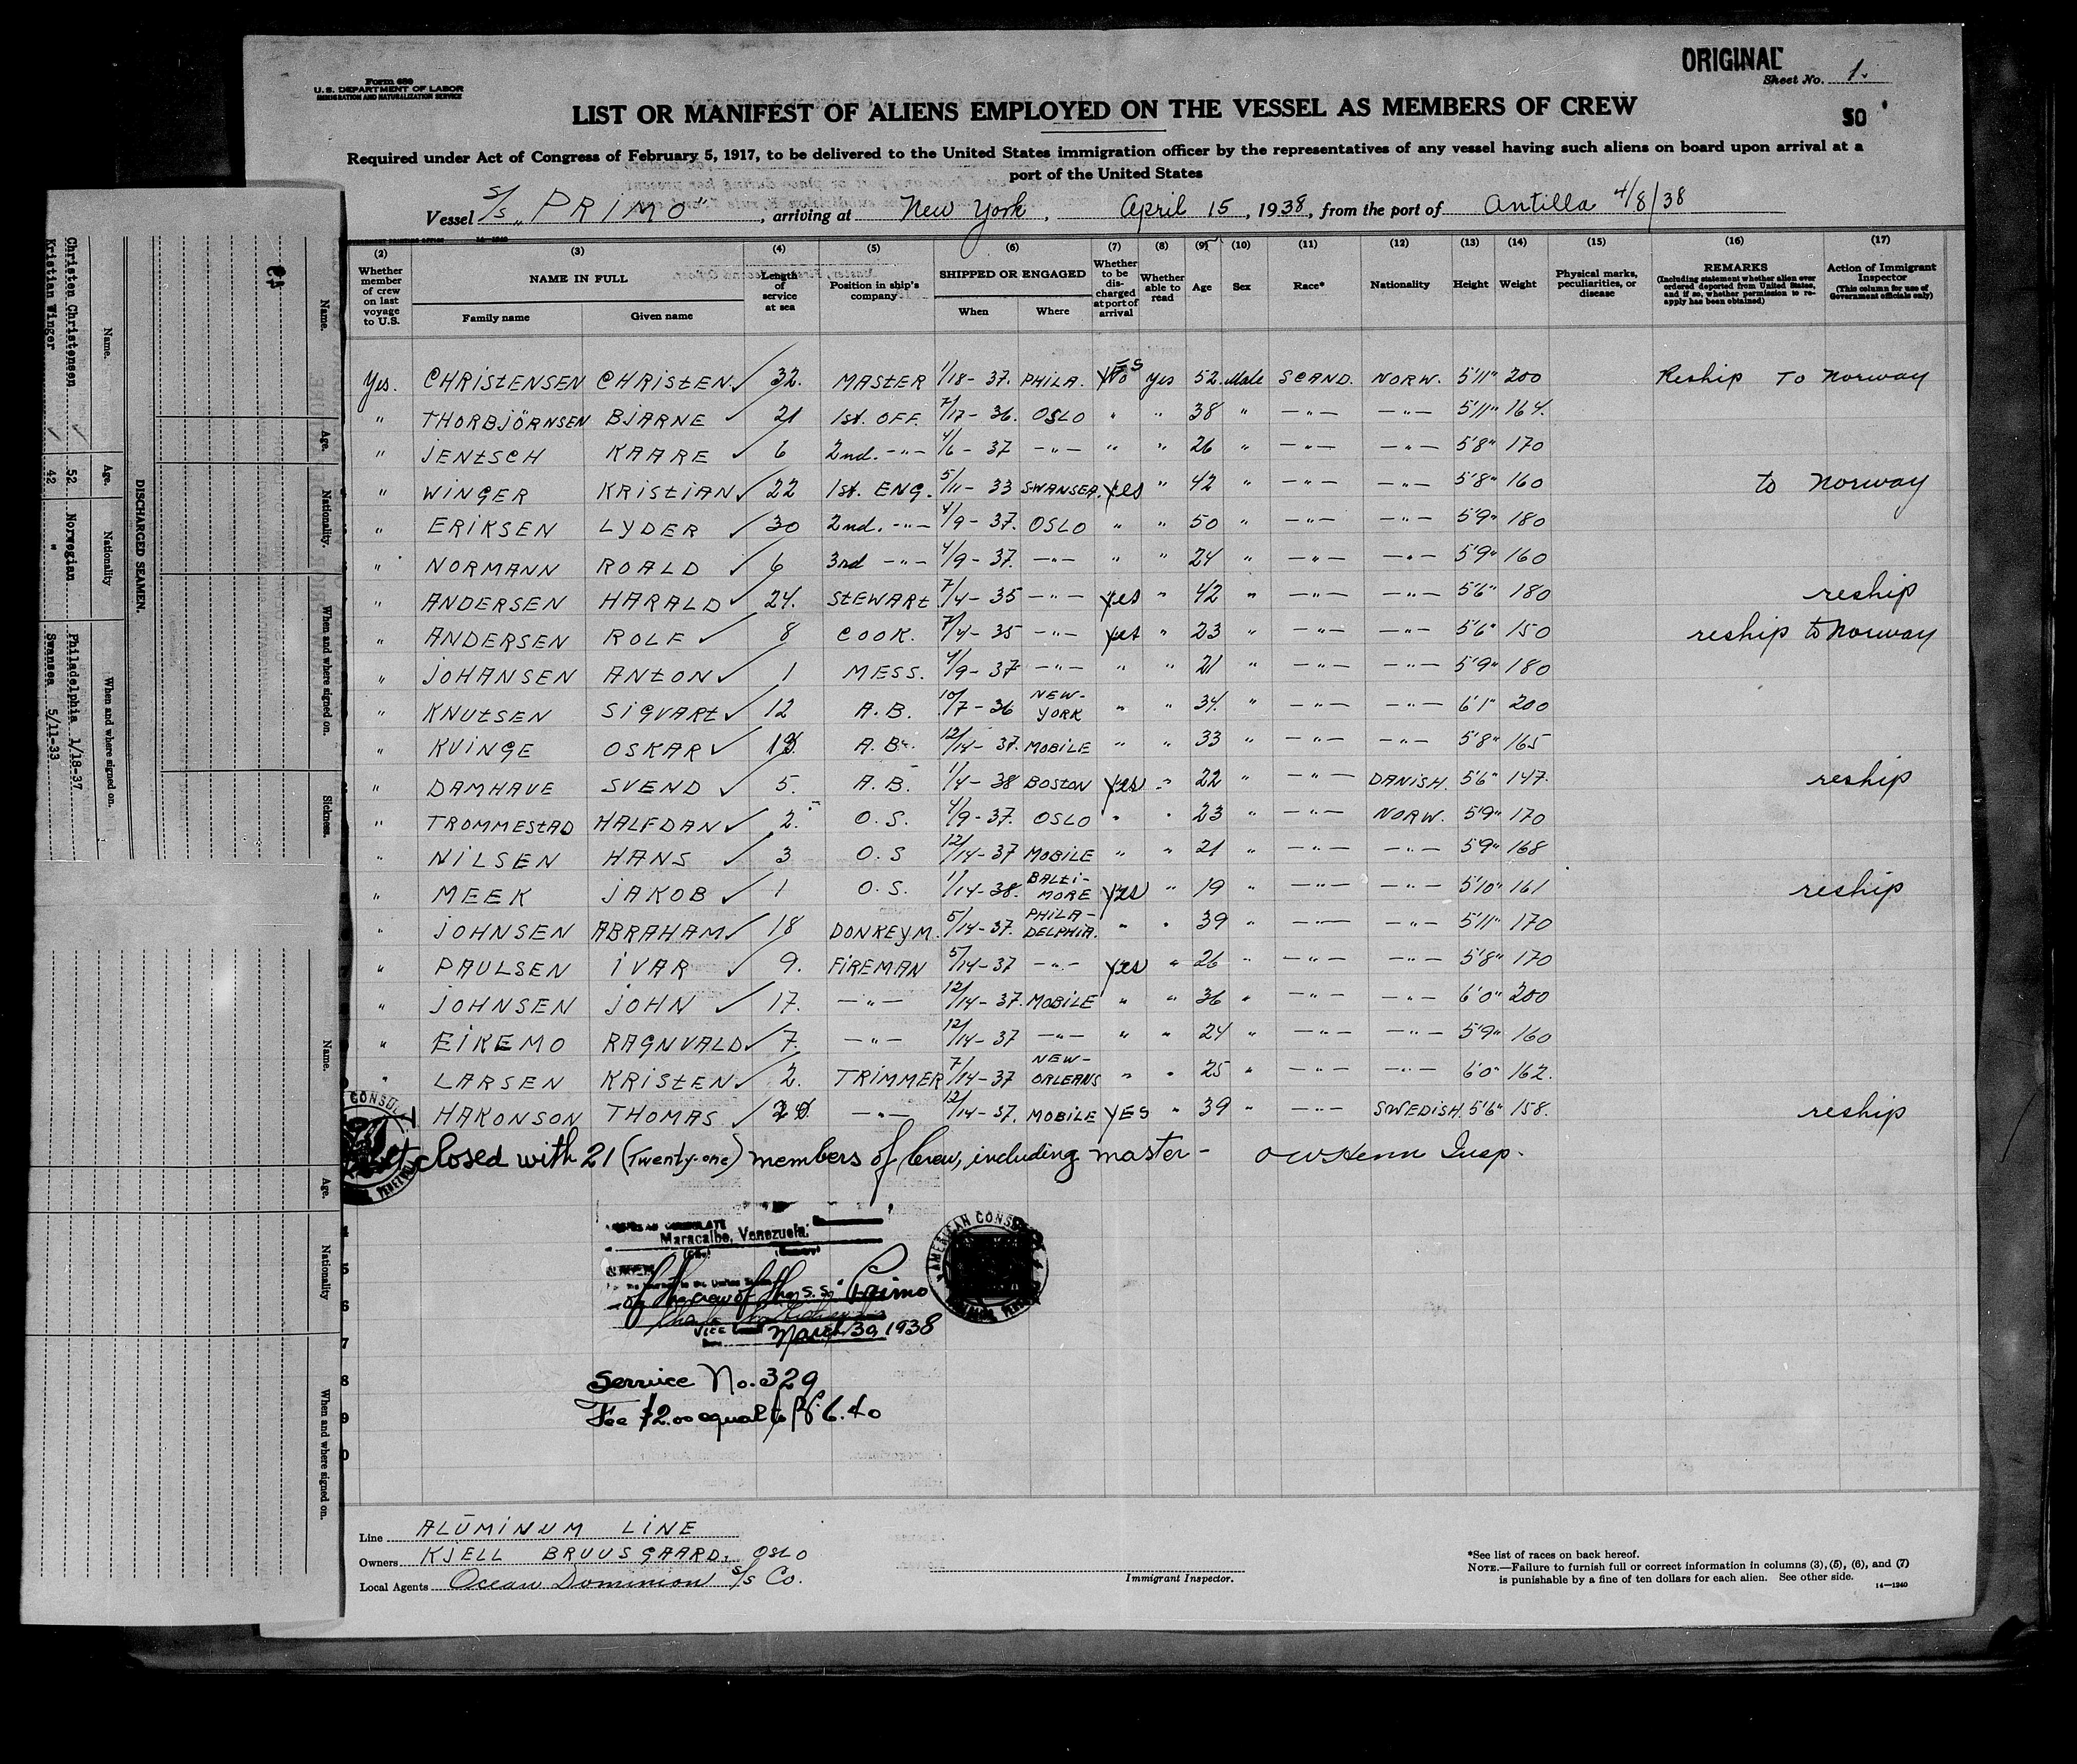 ORIGINAL
Sheet No. 1.
50
Form 680
U.S. DEPARTMENT OF LABOR
IMMIGRATION AND NATURALIZATION SERVICE
LIST OR MANIFEST OF ALIENS EMPLOYED ON THE VESSEL AS MEMBERS OF CREW
Required under Act of Congress of February 5, 1917, to be delivered to the United States immigration officer by the representatives of any vessel having such aliens on board upon arrival at a
port of the United States
Vessel S/S „PRIMO", arriving at New York, April 15, 1938, from the port of Antilla 4/8/38
(2) (3) (4) (5) (6) (7) (8) (9) (10) (11) (12) (13) (14) (15) (16) (17)
Whether member of crew on last voyage to U.S. NAME IN FULL Family name Given name Length of service at sea Position in ship's company SHIPPED OR ENGAGED When Where Whether to be discharged at port of arrival Whether able to read Age Sex Race* Nationality Height Weight Physical marks, peculiarities, or disease REMARKS (Including statement whether alien ever ordered deported from United States, and if so, whether permission to reapply has been obtained) Action of Immigrant Inspector (This column for use of Government officials only)
Yes. CHRISTENSEN CHRISTEN ✓ 32. MASTER 1/18-37. PHILA. YES yes 52. Male SCAND. NORW. 5'11" 200 Reship To Norway
" THORBJÖRNSEN BJARNE ✓ 21 1st. OFF. 7/17-36. OSLO " " 38 " -"- -"- 5'11" 164.
" JENTSCH KAARE ✓ 6 2nd. -"- 4/6-37 -"- " " 26 " -"- -"- 5'8" 170
" WINGER KRISTIAN ✓ 22 1st. ENG. 5/11-33 SWANSEA. yes " 42 " -"- -"- 5'8" 160 to Norway
" ERIKSEN LYDER ✓ 30 2nd. -"- 4/9-37. OSLO " " 50 " -"- -"- 5'9" 180
" NORMANN ROALD ✓ 6 3rd -"- 4/9-37. -"- " " 24 " -"- -"- 5'9" 160
" ANDERSEN HARALD ✓ 24. STEWART 7/4-35 -"- yes " 42 " -"- -"- 5'6" 180 reship
" ANDERSEN ROLF ✓ 8 COOK. 7/4-35 -"- yes " 23 " -"- -"- 5'6" 150 reship to Norway
" JOHANSEN ANTON ✓ 1 MESS. 4/9-37 -"- " " 21 " -"- -"- 5'9" 180
" KNUTSEN SIGVART ✓ 12 A.B. 10/7-36 NEW-YORK " " 34. " -"- -"- 6'1" 200
" KVINGE OSKAR ✓ 13 A.B. 12/14-37. MOBILE " " 33 " -"- -"- 5'8" 165
" DAMHAVE SVEND ✓ 5. A.B. 1/4-38 BOSTON yes " 22 " -"- DANISH. 5'6" 147. reship
" TROMMESTAD HALFDAN ✓ 2. O.S. 4/9-37. OSLO " " 23 " -"- NORW. 5'9" 170
" NILSEN HANS ✓ 3 O.S 12/14-37 MOBILE " " 21 " -"- -"- 5'9" 168
" MEEK JAKOB ✓ 1 O.S. 1/14-38. BALTI-MORE yes " 19 " -"- -"- 5'10" 161 reship
" JOHNSEN ABRAHAM ✓ 18 DONKEYM. 5/14-37. PHILA-DELPHIA. " " 39 " -"- -"- 5'11" 170
" PAULSEN IVAR ✓ 9. FIREMAN 5/14-37 -"- yes " 26 " -"- -"- 5'8" 170
" JOHNSEN JOHN ✓ 17. -"- 12/14-37. MOBILE " " 36 " -"- -"- 6'0" 200
" EIKEMO RAGNVALD ✓ 7. -"- 12/14-37 -"- " " 24 " -"- -"- 5'9" 160
" LARSEN KRISTEN ✓ 2. TRIMMER 7/14-37 NEW-ORLEANS " " 25 " -"- -"- 6'0" 162.
HAKONSON THOMAS ✓ -"- 12/14-37. MOBILE YES " 39 " -"- SWEDISH. 5'6" 158. reship
closed with 21 (Twenty-one) members of Crew, including master - Insp.
Maracaibo, Venezuela.
of the crew of the S.S. Primo
VICE
March 30, 1938
AMERICAN CONSUL
Service No. 329
Fee $2.00 equal to Bs 6.40
Line ALUMINUM LINE
Owners KJELL BRUUSGAARD, OSLO
Local Agents Ocean Dominion S/S Co.
Immigrant Inspector.
*See list of races on back hereof.
NOTE.—Failure to furnish full or correct information in columns (3), (5), (6), and (7)
is punishable by a fine of ten dollars for each alien. See other side.
14—1240
DISCHARGED SEAMEN.
Name. Age. Nationality When and where signed on.
Christen Christensen ✓ 52 Norwegian Philadelphia 1/18-37
Kristian Winger ✓ 42 " Swansea 5/11-33
Name. Age. Nationality. When and where signed on. Sickness.
Name. Age. Nationality When and where signed on.